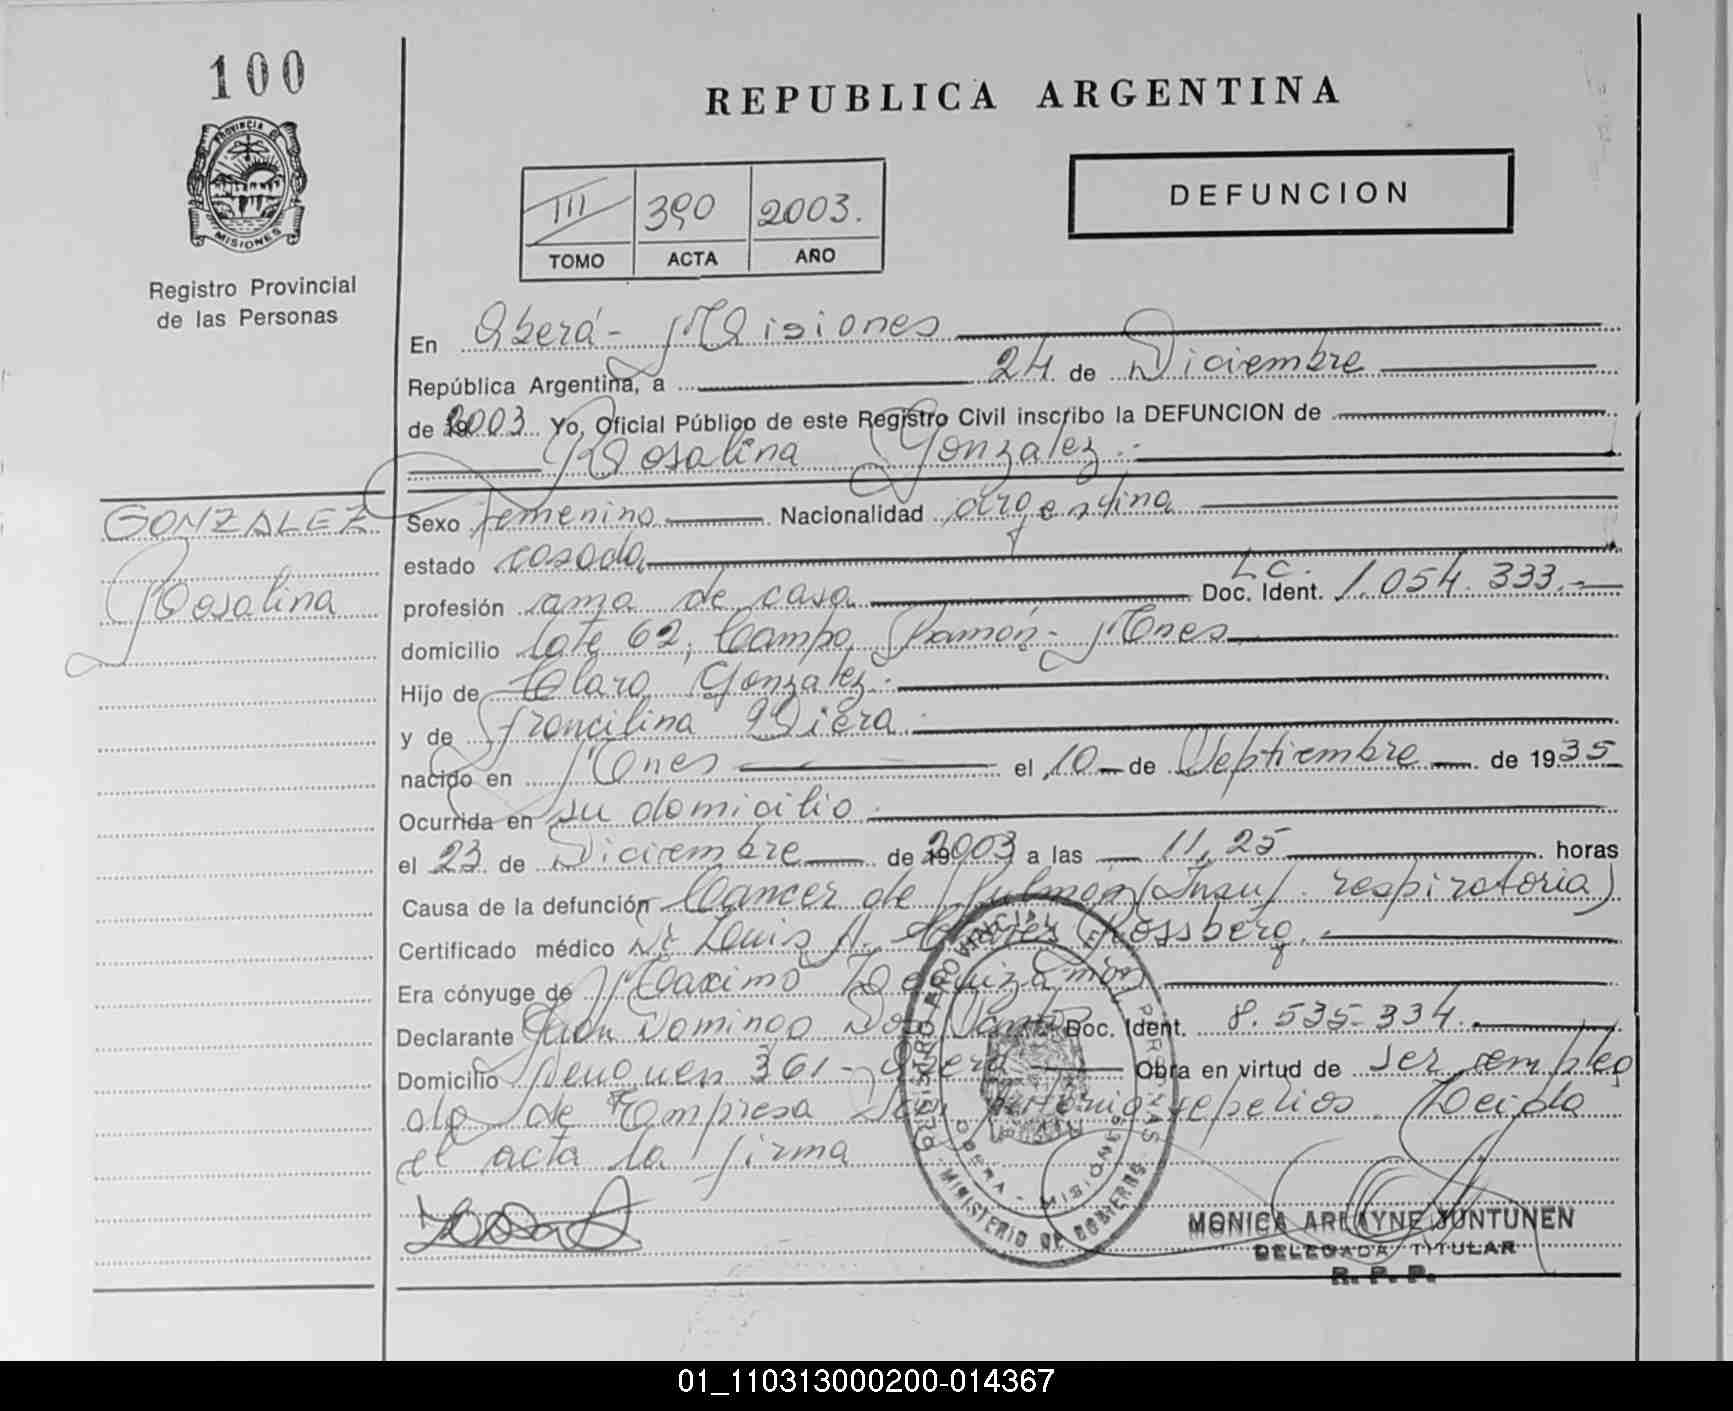 100
REPUBLICA ARGENTINA
PROVINCIA DE
MISIONES
Registro Provincial
de las Personas
III 390 2003.
TOMO ACTA AÑO
DEFUNCION
En Oberá - Misiones
República Argentina, a 24 de Diciembre
de 2003 Yo, Oficial Público de este Registro Civil inscribo la DEFUNCION de
Rosalina Gonzalez.-
GONZALEZ
Rosalina
Sexo femenino Nacionalidad argentina
estado casada
profesión ama de casa Doc. Ident. L.C. 1.054.333.-
domicilio Lote 62, Campo Ramón - Mnes.
Hijo de Claro Gonzalez.-
y de Francilina Viera.-
nacido en Mnes el 10 de Septiembre de 1935
Ocurrida en su domicilio.
el 23 de Diciembre de 2003 a las 11,25 horas
Causa de la defunción Cancer de Pulmón (Insuf. respiratoria)
Certificado médico Dr Luis A. Rossberg.
Era cónyuge de Maximo Leguizamón
Declarante Juan Domingo Dos Santos Doc. Ident. 8.535.334.
Domicilio Neuquen 361 - Oberá Obra en virtud de ser emplea
do de Empresa San Antonio sepelios. Leida
el acta la firma
REGISTRO PROVINCIAL DE PERSONAS
OBERA - MISIONES
MINISTERIO DE GOBIERNO
MONICA ARLAYNE JUNTUNEN
DELEGADA TITULAR
R. P. P.
01_110313000200-014367